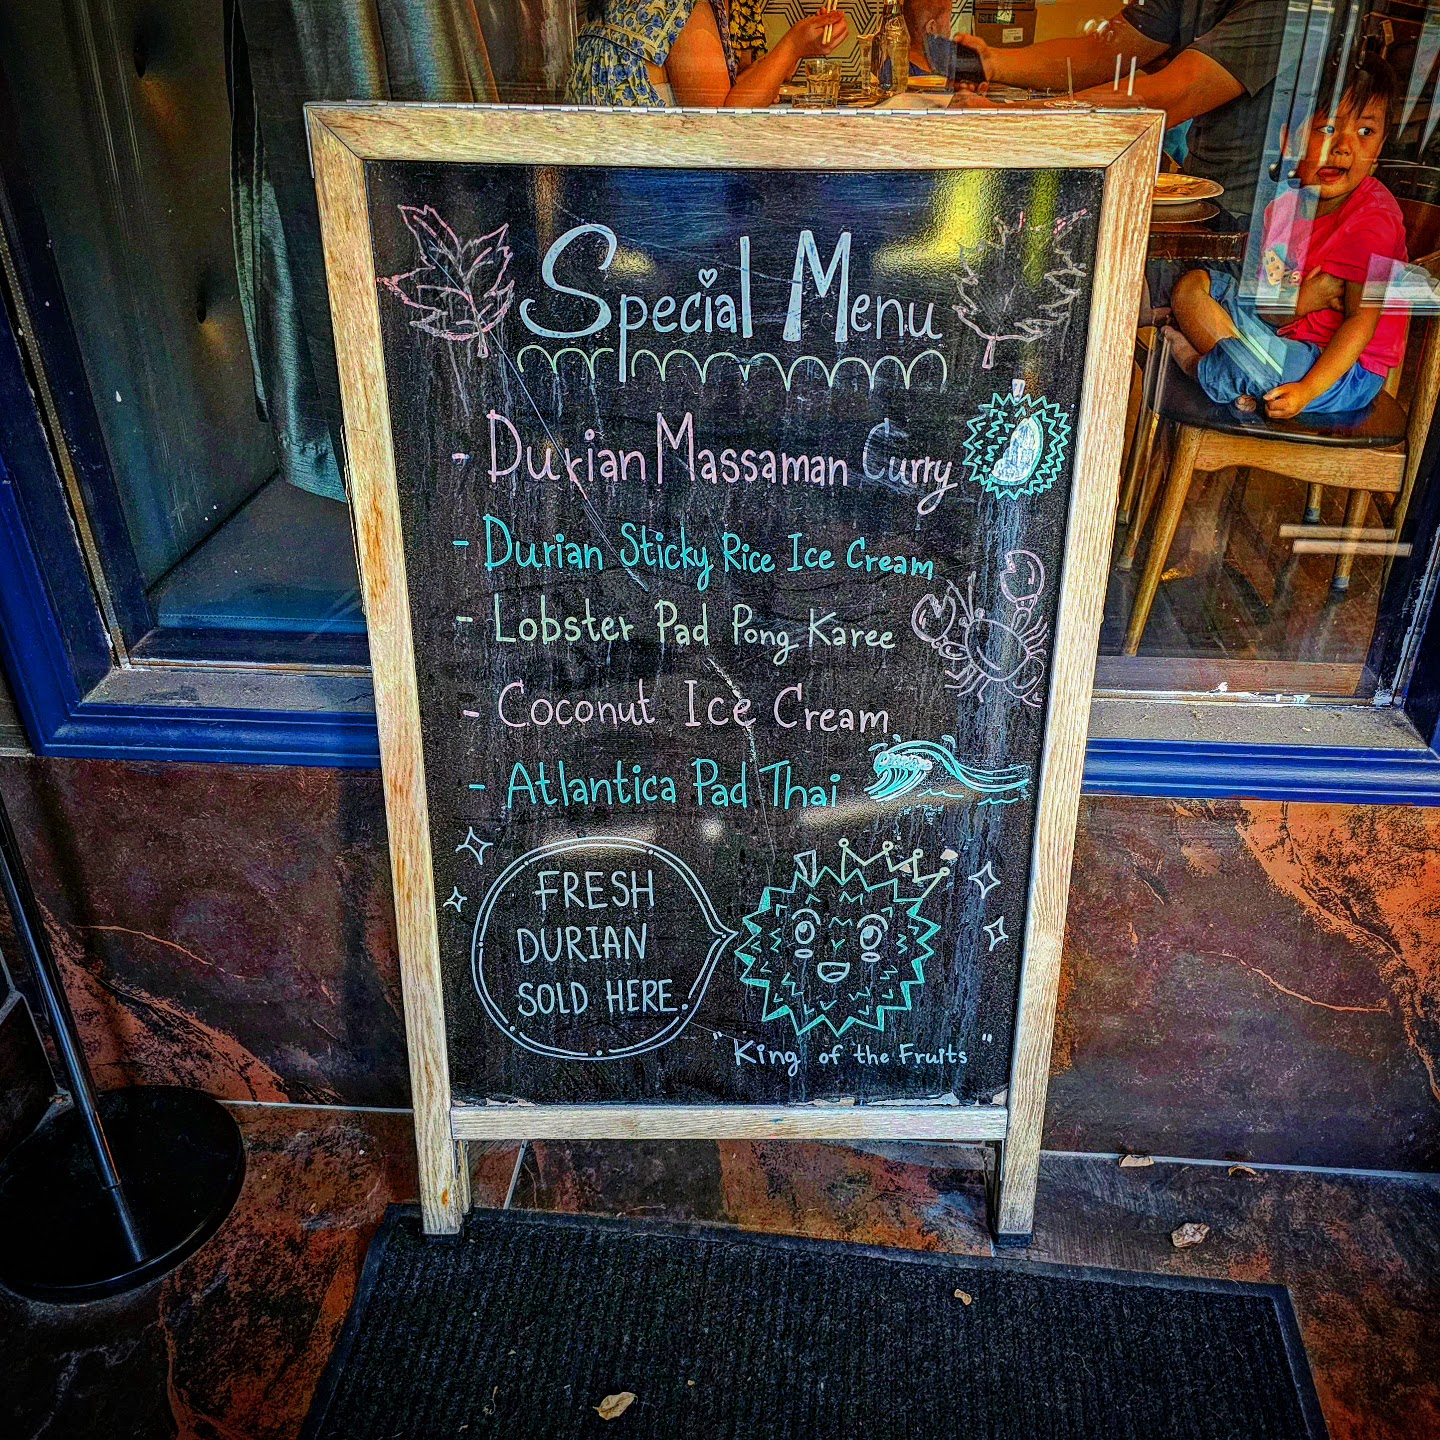 Special Menu
- Durian Massaman Curry
- Durian Sticky Rice Ice Cream
- Lobster Pad Pong Karee
- Coconut Ice Cream
- Atlantica Pad Thai
FRESH
DURIAN
SOLD HERE.
"King of the Fruits"